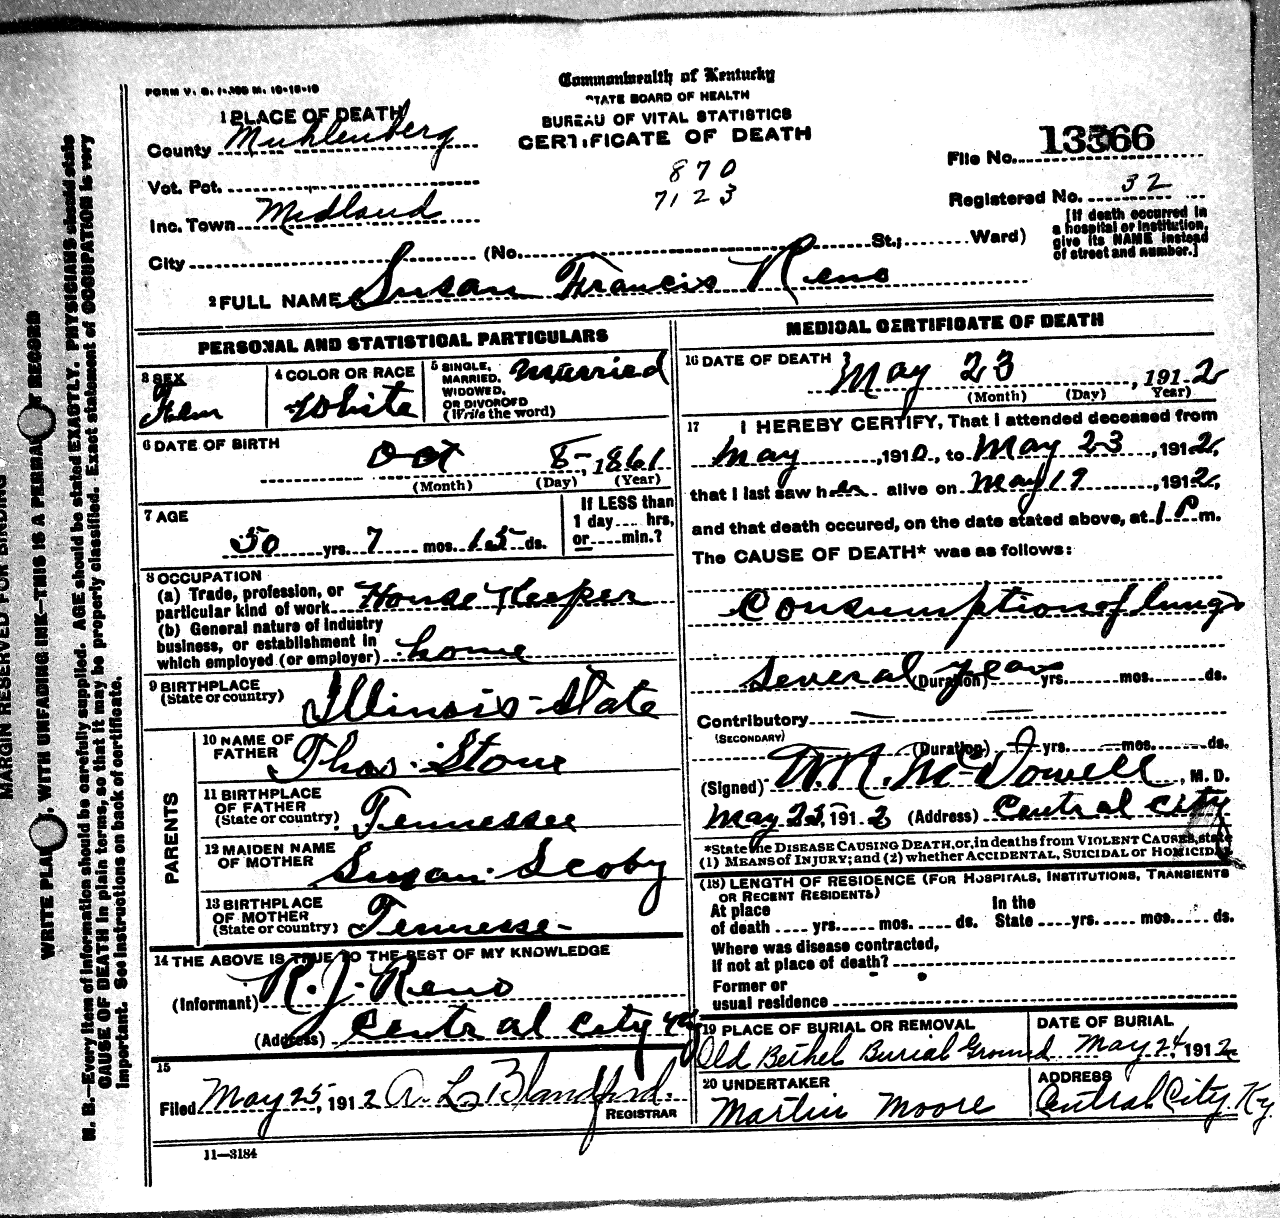 FORM V. S. 1-100 M. 10-18-10
Commonwealth of Kentucky
STATE BOARD OF HEALTH
BUREAU OF VITAL STATISTICS
CERTIFICATE OF DEATH
1 PLACE OF DEATH
County Muhlenberg
Vot. Pct.
Inc. Town Midland
City
(No. St.; Ward)
870
7123
File No. 13566
Registered No. 32
[If death occurred in
a hospital or institution,
give its NAME instead
of street and number.]
2 FULL NAME Susan Francis Reno
PERSONAL AND STATISTICAL PARTICULARS
3 SEX
4 COLOR OR RACE White
5 SINGLE,
MARRIED,
WIDOWED,
OR DIVORCED
(Write the word)
Married
6 DATE OF BIRTH
Oct 8, 1861
(Month) (Day) (Year)
7 AGE
50 yrs. 7 mos. 15 ds.
If LESS than
1 day.... hrs,
or....min.?
8 OCCUPATION
(a) Trade, profession, or
particular kind of work House Keeper
(b) General nature of industry
business, or establishment in
which employed (or employer) home
9 BIRTHPLACE
(State or country) Illinois-State
PARENTS
10 NAME OF
FATHER Thos. Stone
11 BIRTHPLACE
OF FATHER
(State or country) Tennessee
12 MAIDEN NAME
OF MOTHER Susan Scoby
13 BIRTHPLACE
OF MOTHER
(State or country) Tennesse-
14 THE ABOVE IS TRUE TO THE BEST OF MY KNOWLEDGE
(Informant) R. J. Reno
(Address) Central City Ky
15
Filed May 25, 1912 A. L. Blandford.
REGISTRAR
11—3184
MEDICAL CERTIFICATE OF DEATH
16 DATE OF DEATH
May 23, 1912
(Month) (Day) Year)
17 I HEREBY CERTIFY, That I attended deceased from
May, 1910, to May 23, 1912,
that I last saw her alive on May 19, 1912,
and that death occured, on the date stated above, at 1 P m.
The CAUSE OF DEATH* was as follows:
Consumption of lungs
Several years
(Duration) yrs. mos. ds.
Contributory
(SECONDARY)
(Duration) yrs. mos. ds.
(Signed) W.R. McDowell, M. D.
May 25, 1912 (Address) Central City
*State the DISEASE CAUSING DEATH, or, in deaths from VIOLENT CAUSES, state
(1) MEANS OF INJURY; and (2) whether ACCIDENTAL, SUICIDAL or HOMICIDAL
(18) LENGTH OF RESIDENCE (FOR HOSPITALS, INSTITUTIONS, TRANSIENTS
OR RECENT RESIDENTS)
At place
of death .... yrs. mos. ds.
In the
State .... yrs. mos. ds.
Where was disease contracted,
If not at place of death?
Former or
usual residence
19 PLACE OF BURIAL OR REMOVAL
Old Bethel Burial Ground
DATE OF BURIAL
May 24, 1912
20 UNDERTAKER
Martin Moore
ADDRESS
Central City, Ky.
MARGIN RESERVED FOR BINDING
WRITE PLAINLY, WITH UNFADING INK—THIS IS A PERMANENT RECORD
N. B.—Every item of information should be carefully supplied. AGE should be stated EXACTLY. PHYSICIANS should state
CAUSE OF DEATH in plain terms, so that it may be properly classified. Exact statement of OCCUPATION is very
important. See instructions on back of certificate.